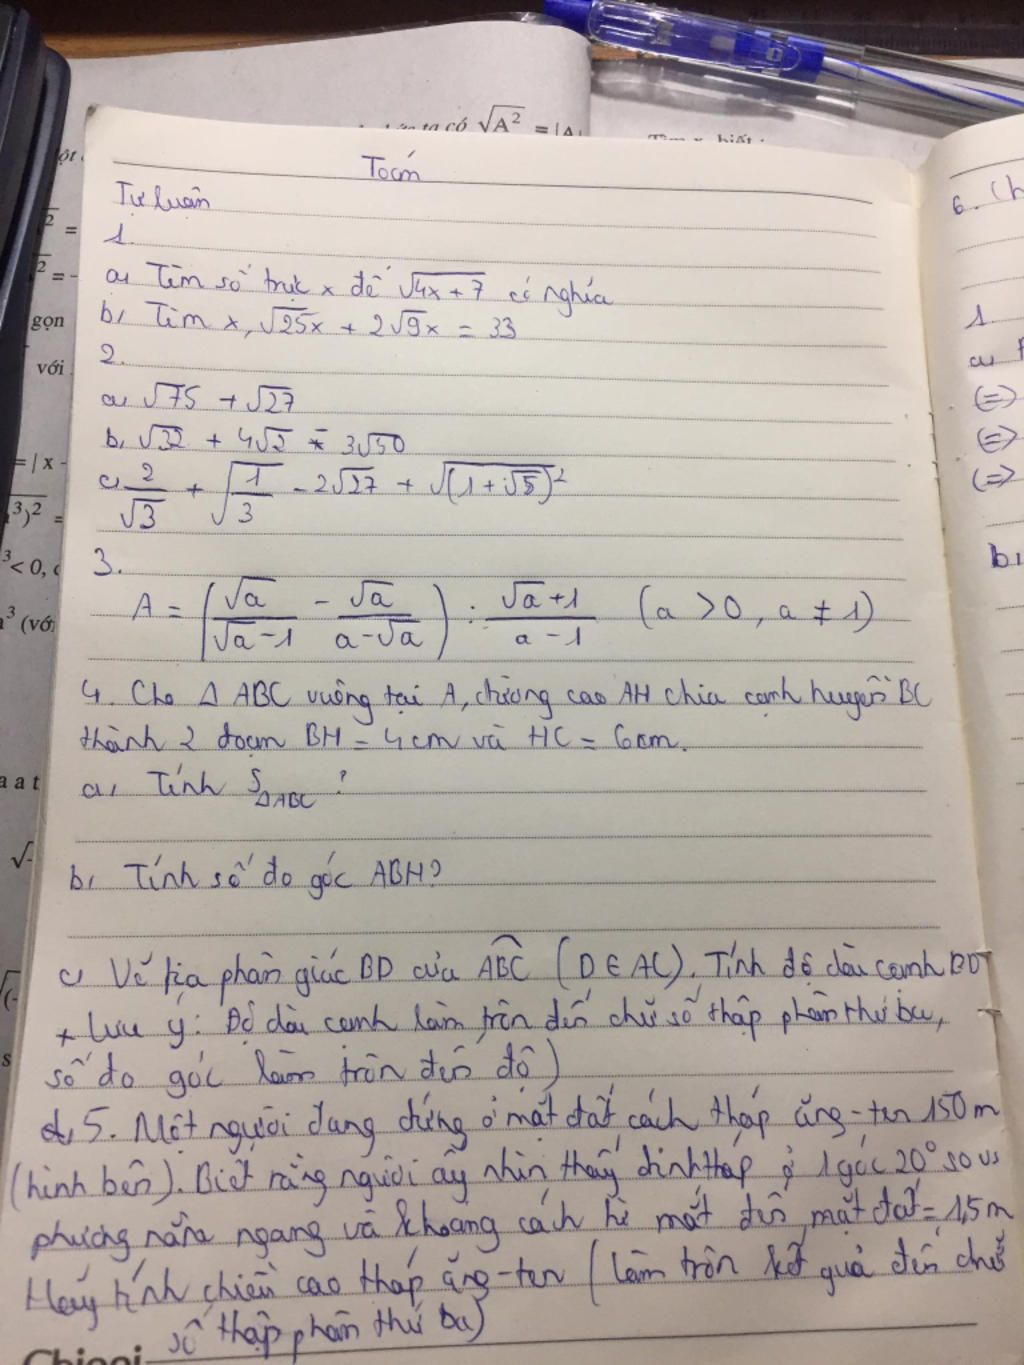 ức ta có √A² = |A|
Tìm x, biết :
ột
gọn
với
= | x -
³ < 0, c
a³ (với
a a t
Toán
Tự luận
1.
a, Tìm số thực x để √4x + 7 có nghĩa
b, Tìm x, √25x + 2√9x = 33
2.
a, √75 + √27
b, √32 + 4√2 - 3√50
c, 2/√3 + √1/3 - 2√27 + √(1 + √5)²
3.
A = (√a/(√a - 1) - √a/(a - √a)) : (√a + 1)/(a - 1) (a > 0, a ≠ 1)
4. Cho Δ ABC vuông tại A, đường cao AH chia cạnh huyền BC
thành 2 đoạn BH = 4cm và HC = 6cm.
a, Tính S ΔABC ?
b, Tính số đo góc ABH?
c, Vẽ tia phân giác BD của ABC (D ∈ AC). Tính độ dài cạnh BD
* Lưu ý: Độ dài cạnh làm tròn đến chữ số thập phân thứ ba,
số đo góc làm tròn đến độ)
5. Một người đang đứng ở mặt đất cách tháp ăng-ten 150m
(hình bên). Biết rằng người ấy nhìn thấy đỉnh tháp ở 1 góc 20° so vs
phương nằm ngang và khoảng cách từ mắt đến mặt đất = 1,5m
Hãy tính chiều cao tháp ăng-ten (làm tròn kết quả đến chữ
số thập phân thứ ba)
6. Ch
1
a,
(=>
(=>
(=>
b,